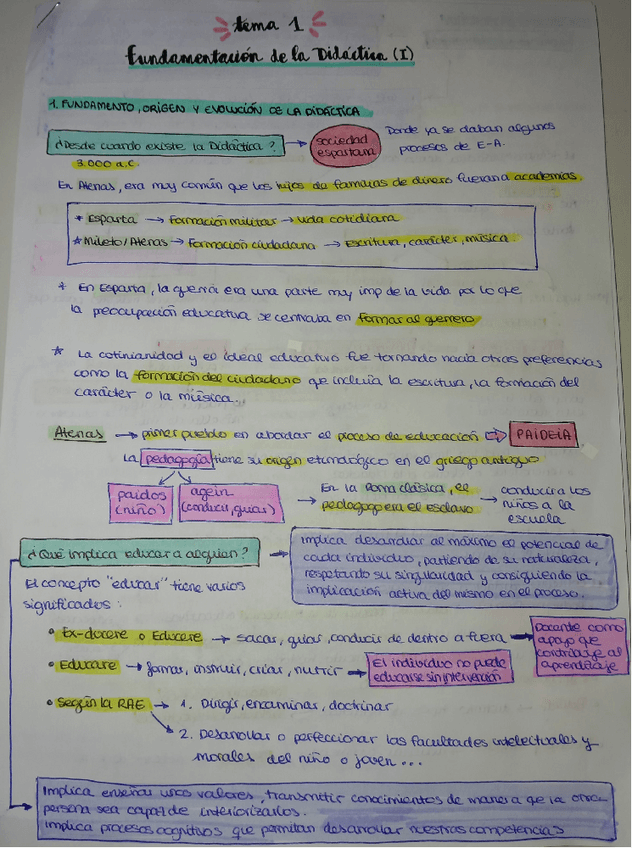 tema 1
Fundamentación de la Didáctica (I)
1. FUNDAMENTO, ORIGEN Y EVOLUCIÓN DE LA DIDÁCTICA
¿Desde cuando existe la Didáctica? → sociedad espartana
Donde ya se daban algunos
procesos de E-A.
3.000 a.C.
En Atenas, era muy común que los hijos de familias de dinero fueran a academias.
* Esparta → Formación militar → vida cotidiana
* Mileto/Atenas → Formación ciudadana → Escritura, carácter, música.
* En Esparta, la guerra era una parte muy imp de la vida por lo que
la preocupación educativa se centraba en formar al guerrero
* La cotinianidad y el ideal educativo fue tornando hacia otras preferencias
como la formación del ciudadano que incluía la escritura, la formación del
carácter o la música.
Atenas → primer pueblo en abordar el proceso de educación ⇨ PAIDEIA
La pedagogía tiene su origen etimológico en el griego antiguo.
paidos
(niño)
agein
(conducir, guiar)
→ En la Roma clásica, el
pedagogo era el esclavo
→ conducir a los
niños a la
escuela
¿Qué implica educar a alguien? →
implica desarrollar al máximo el potencial de
cada individuo, partiendo de su naturaleza,
respetando su singularidad y consiguiendo la
implicación activa del mismo en el proceso.
El concepto "educar" tiene varios
significados:
• Ex-docere o Educere → sacar, guiar, conducir de dentro a fuera →
docente como
apoyo que
contribuye al
aprendizaje
• Educare → formar, instruir, criar, nutrir →
El individuo no puede
educarse sin intervención
• Según la RAE → 1. Dirigir, encaminar, doctrinar
2. Desarrollar o perfeccionar las facultades intelectuales y
morales del niño o joven...
Implica enseñar unos valores, transmitir conocimientos de manera que la otra
persona sea capaz de interiorizarlos.
Implica procesos cognitivos que permitan desarrollar nuestras competencias